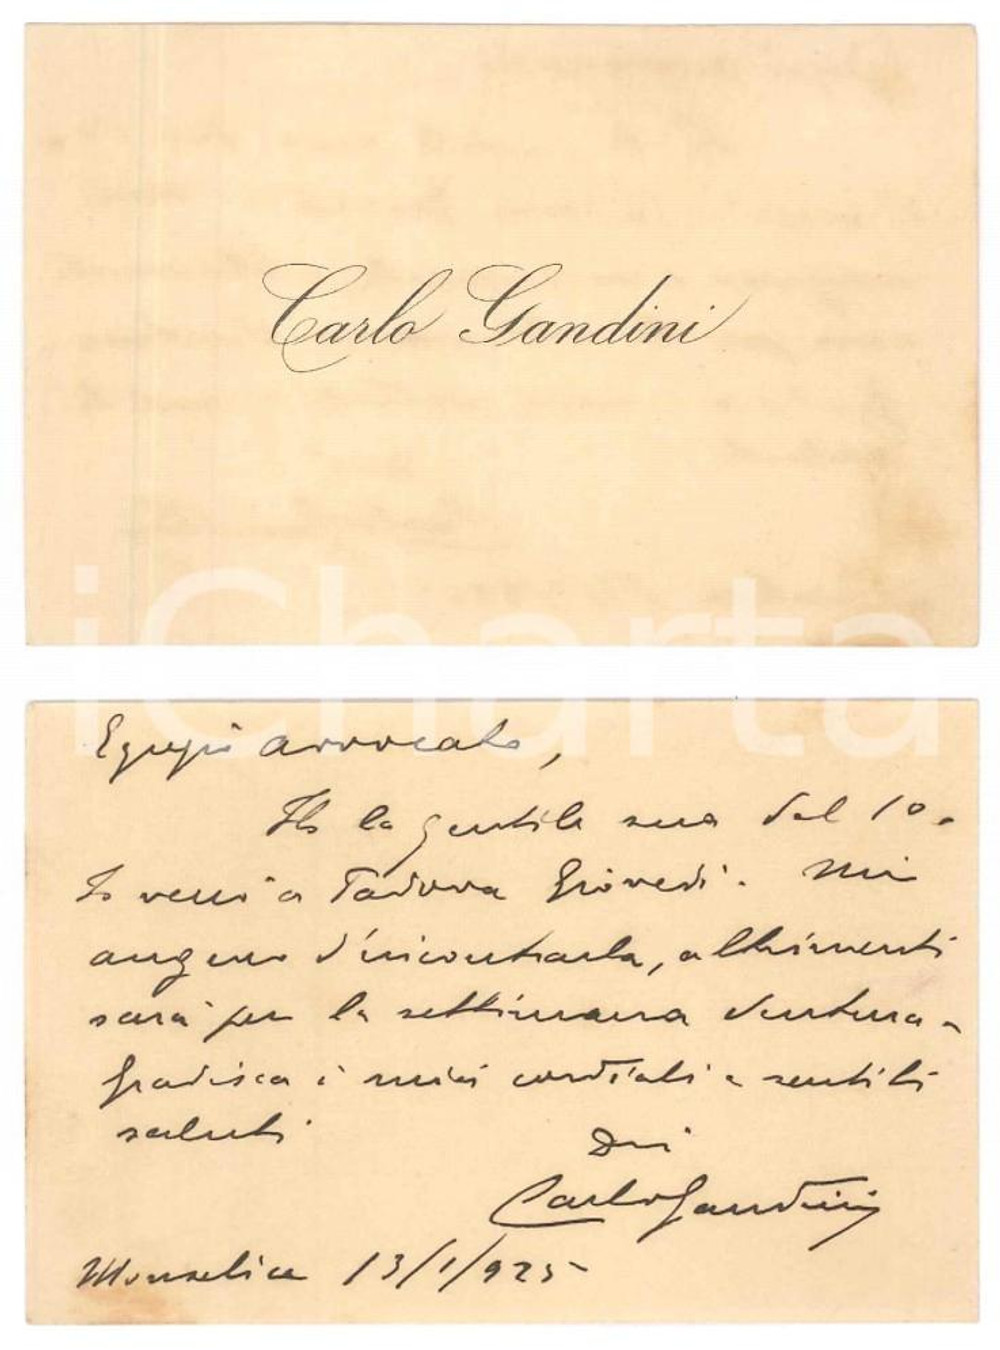 Carlo Gandini
iCharta
Egregio avvocato,
Ho la gentile sua del 10.
Io verrò a Padova Giovedì. Mi
auguro d'incontrarla, altrimenti
sarà per la settimana ventura.
Gradisca i miei cordiali e sentiti
saluti
Carlo Gandini
Monselice 13/1/925